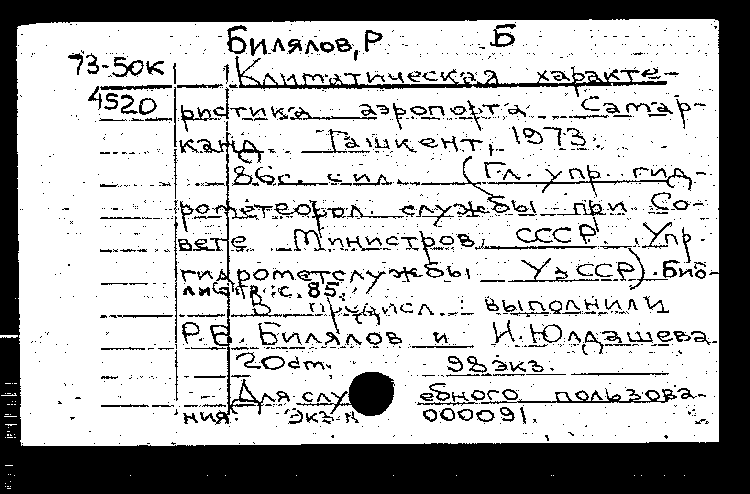 Билялов, Р Б
73-50к Климатическая характе-
4520 ристика аэропорта Самар-
канд. Ташкент, 1973.
86с. с ил. (Гл. упр. гид-
рометеорол. службы при Со-
вете Министров СССР. Упр.
гидрометслужбы УзССР). Биб-
лиогр.: с. 85.
В предисл.: выполнили
Р.Б. Билялов и И. Юлдашева
20см. 98экз.
Для слу ебного пользова-
ния. Экз. N 000091.